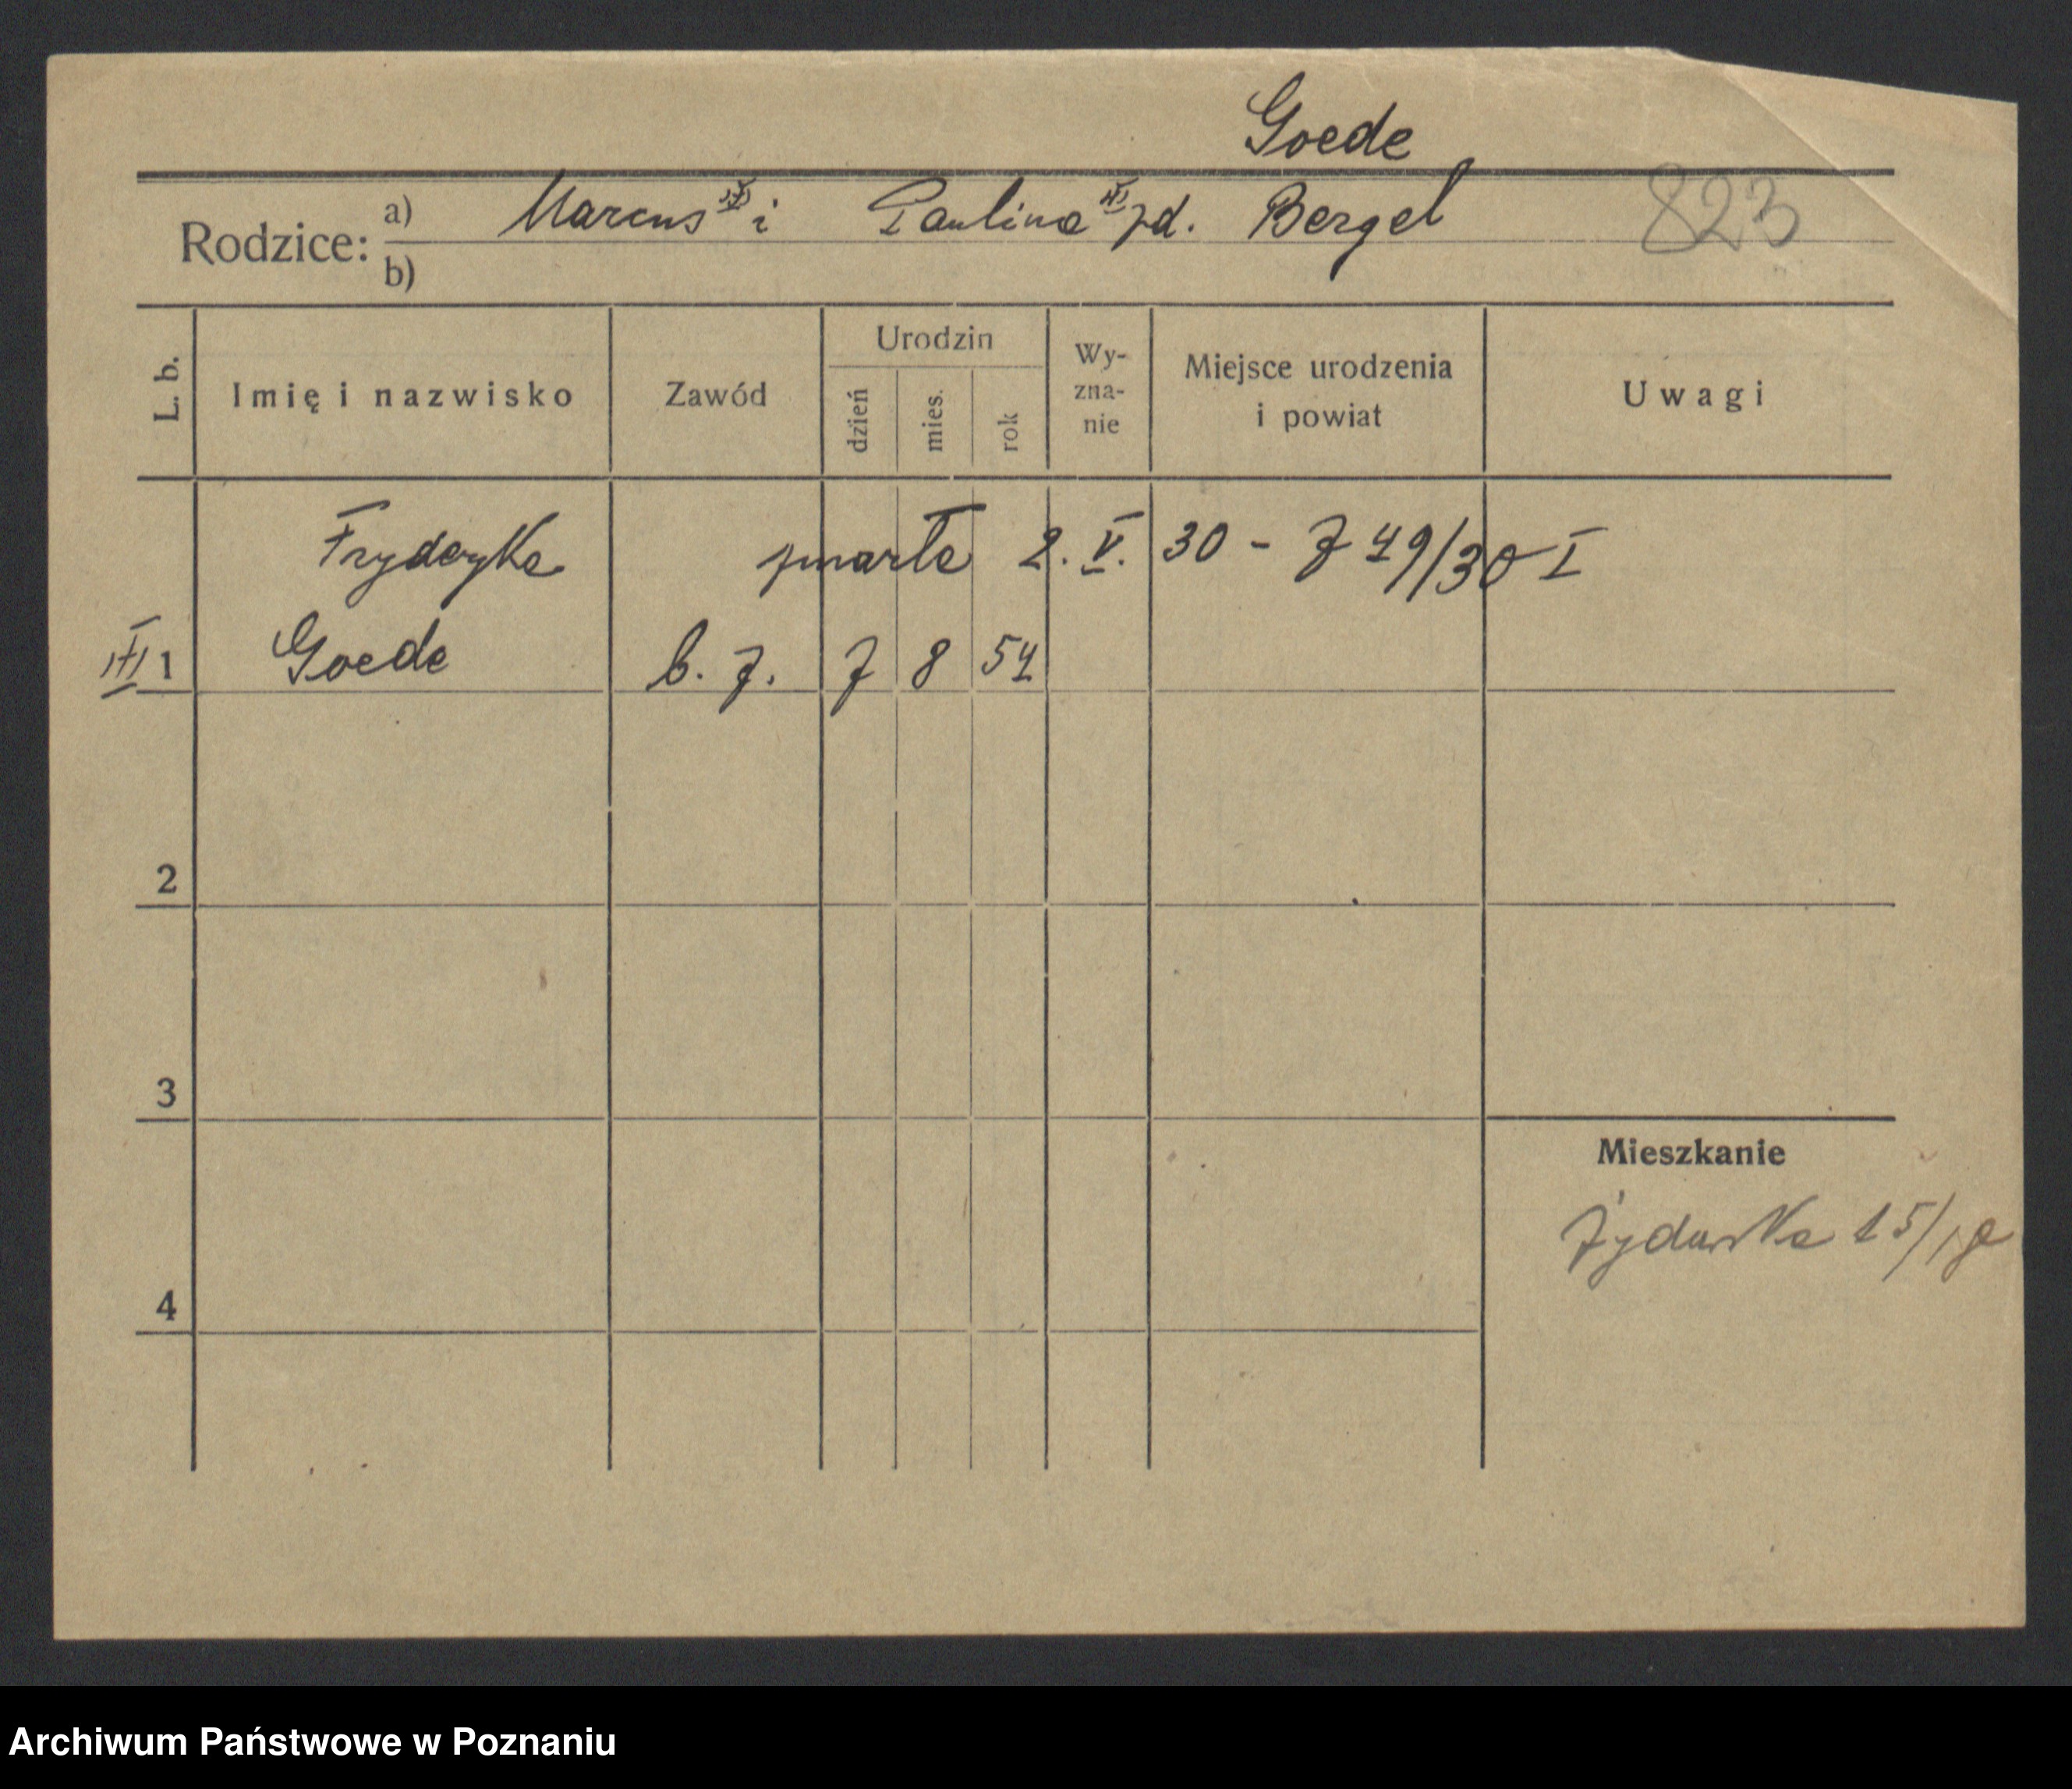 Goede
Rodzice: a) Marcus i Paulina zd. Bergel
823
b)
L. b. Imię i nazwisko Zawód Urodzin dzień mies. rok Wy-zna-nie Miejsce urodzenia i powiat Uwagi
Fryderyka zmarła 2. V. 30 - Z 49/30 I
1 Goede b. z. 7 8 54
2
3
Mieszkanie
Żydowska 15/18
4
Archiwum Państwowe w Poznaniu